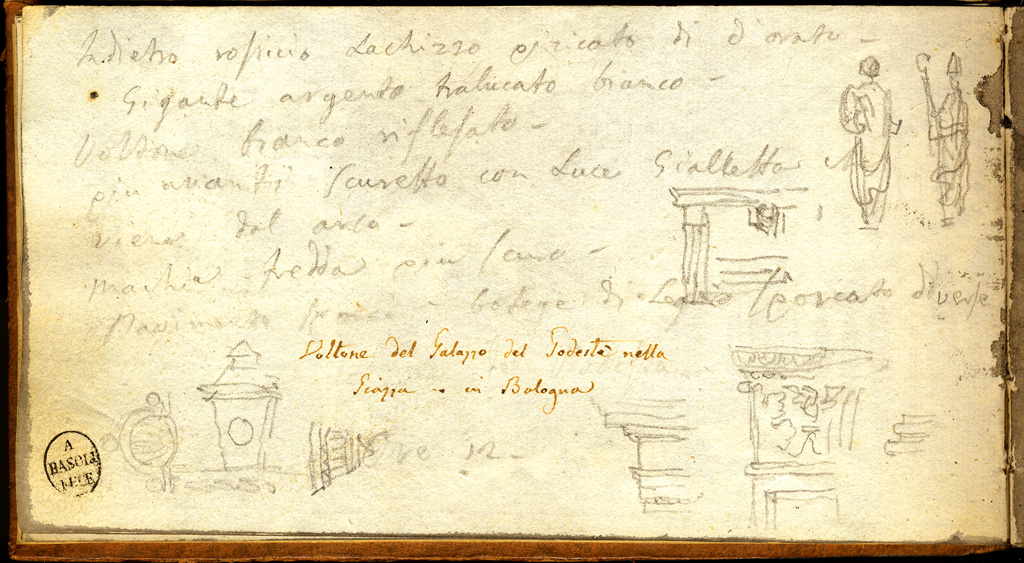 Indietro rossicio Lachizzo pizicato di d'orato -
Gigante argento tralucato bianco -
Voltone bianco riflesato -
piu avanti scuretto con Luce Gialletta
viene dal arco -
Machia fredda piu scuro -
Pavimento botege di Legnio sporcato diverse
Voltone del Palazzo del Podestà nella
Piazza in Bologna
Ore 12 -
A
BASOLI
FECE